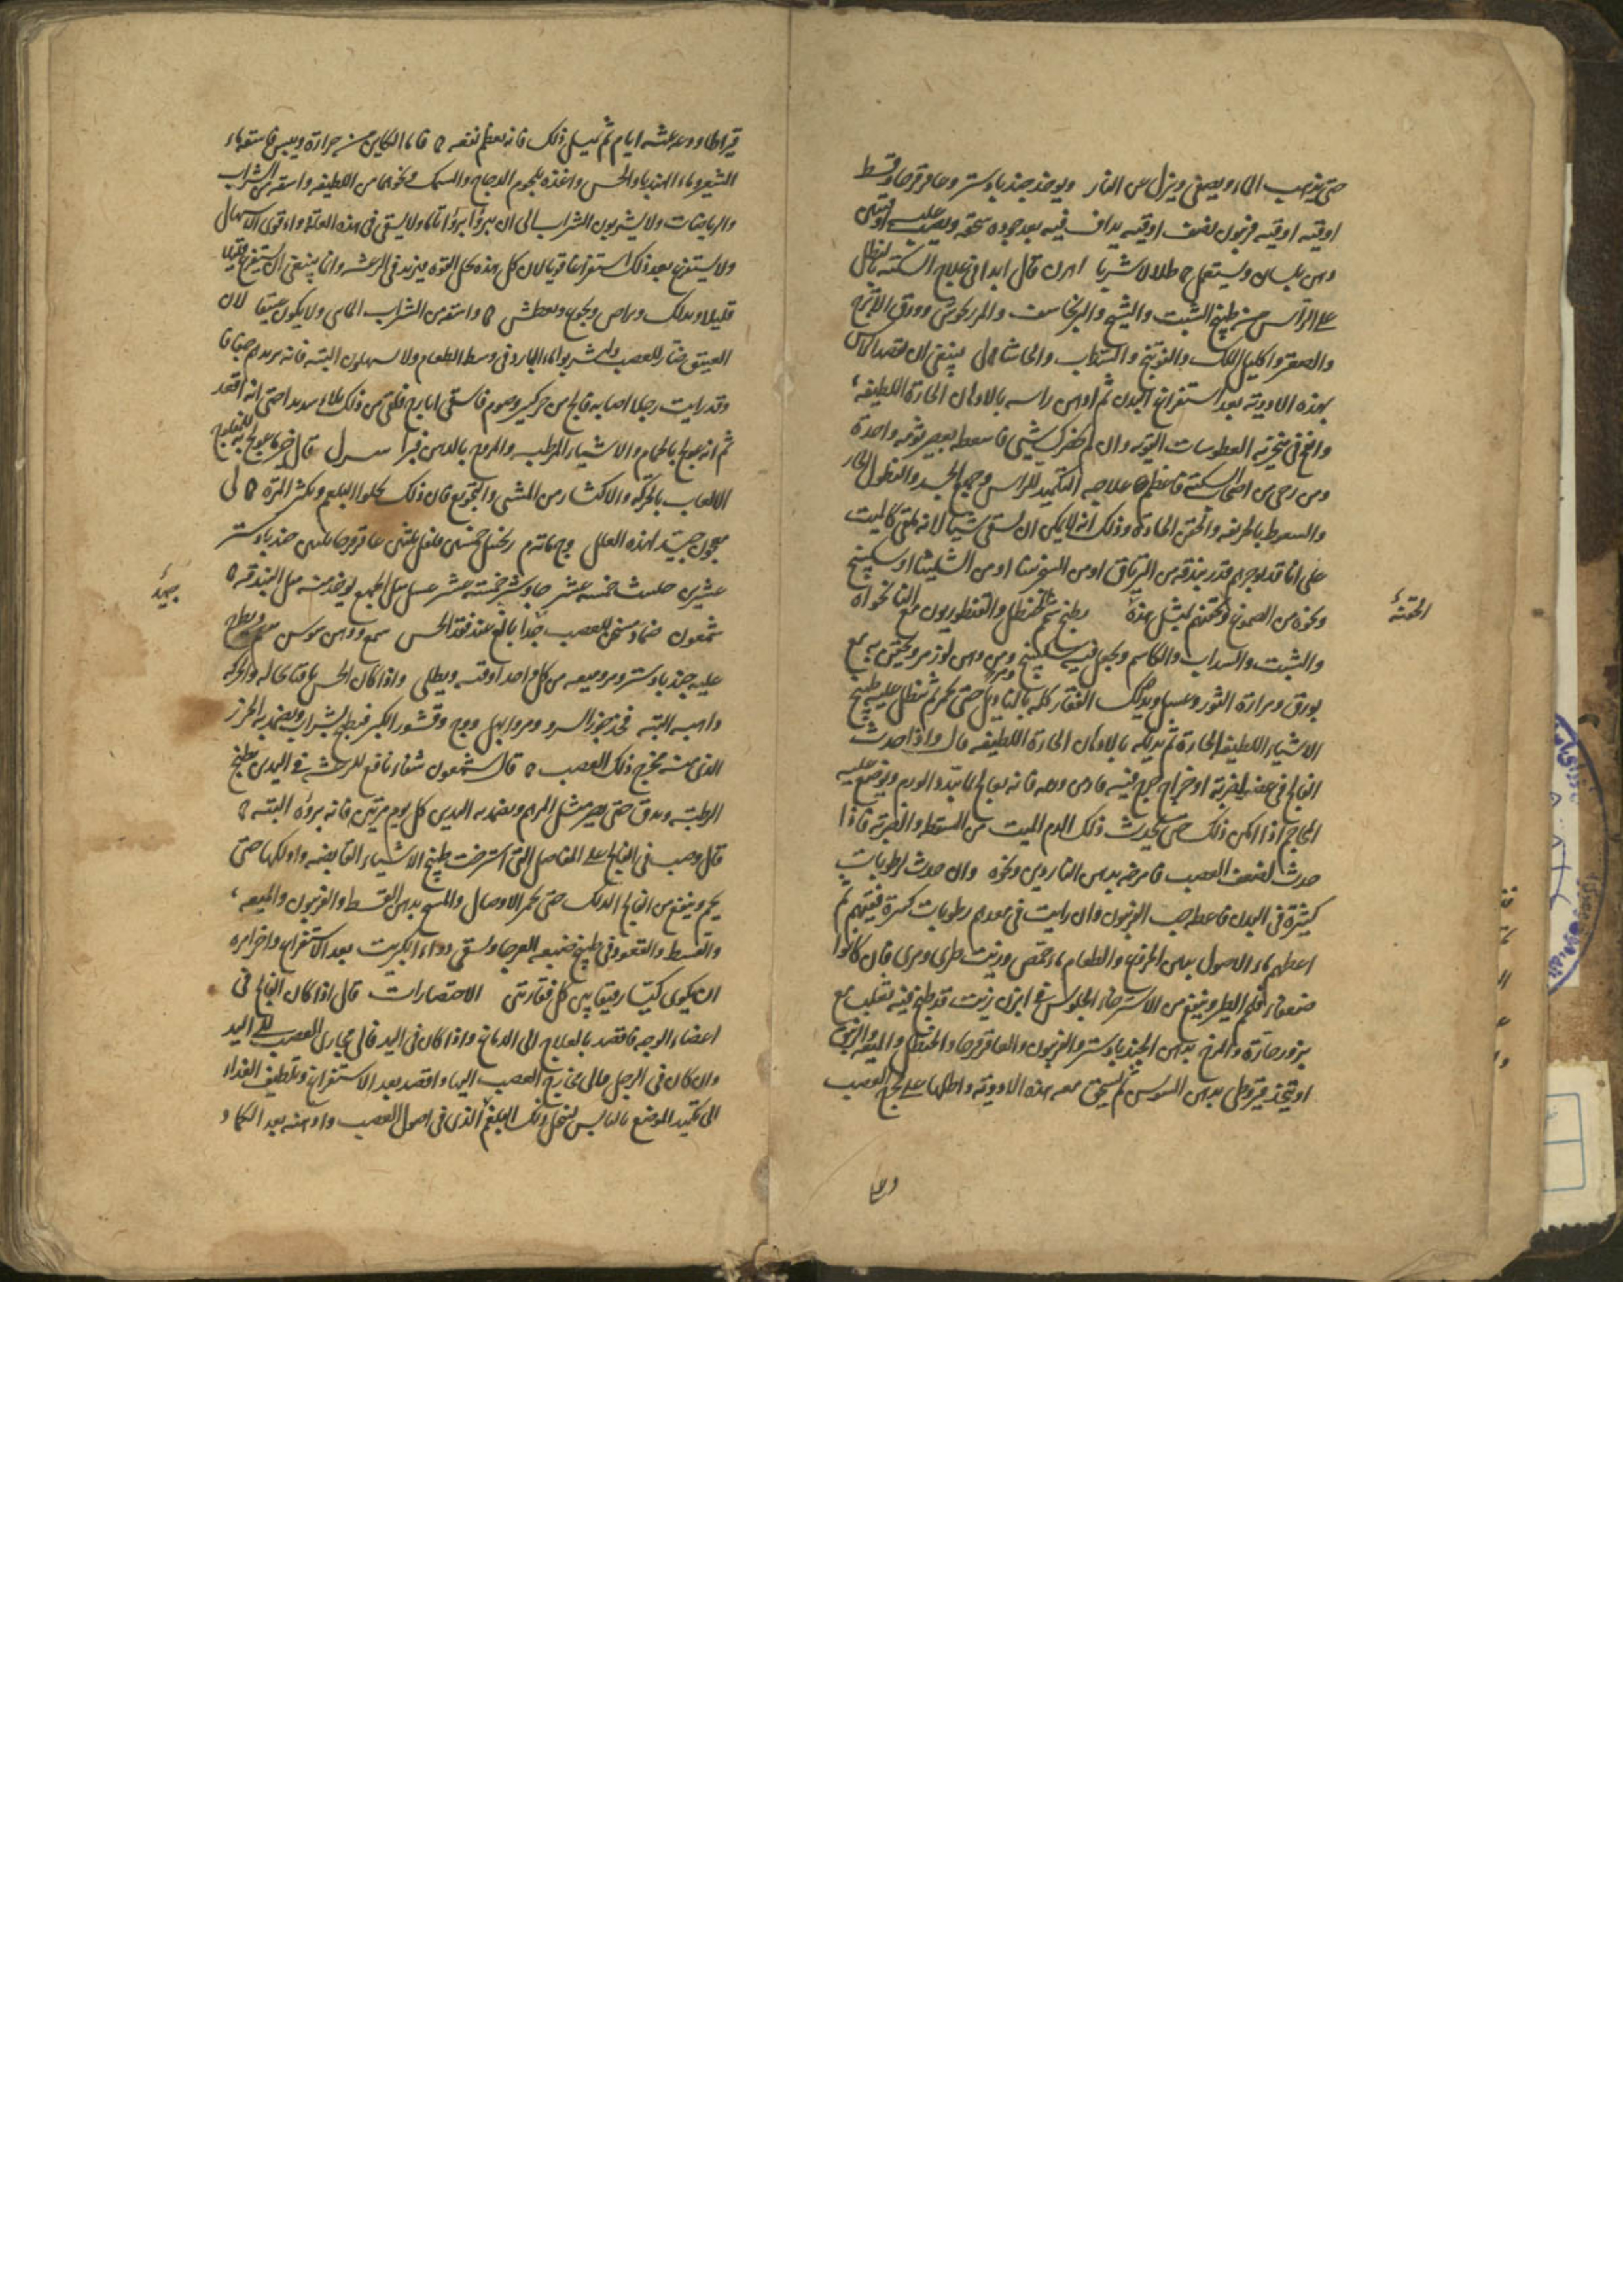 حتى يذهب الماء ويصفى وينزل عن النار ويوخذ جندبادستر وعاقرقرحا وقسط
اوقيه اوقيه فربيون نصف اوقيه يداف فيه بعد جوده سحقه ويصب عليه اوقيتين
دهن بلسان ويستعمل طلا لا شربا اهرن قال ابدا في علاج السكتة بالنطل
على الراس من طبيخ الشبت والشيح والبرنجاسف والمرزنجوش وورق الاترج
والصعتر واكليل الملك والفوتنج والسذاب والحاشا لى ينبغى ان تقصد الراس
بهذه الادوية بعد استفراغ البدن ثم ادهن راسه بالادهان الحارة اللطيفه
وانفخ في منخريه العطوسات القويه وان لم يحضرك شيى فاسعطه
ومن رحى من اصحاب السكتة فاعظم علاجه التكميد للراس وجميع الجسد والنطول الحار
والسعوط بالحريفه والحقن الحادة وذلك انه لا يمكن ان يسقى شيئا لانه ملقى كالميت
على انا قد نوجرهم قدر بندقه من الترياق او من السجزنيا او من الشليثا او سكبينج
ونحوه من الصموغ واحقنهم بمثل هذه يطبخ شحم الحنظل والقنطوريون مع النانخواه
الحقنة
والشبت والسداب والكاشم ويجعل فيه سكبينج ومرى ودهن لوز مر ويحتقن به مع
بورق ومرارة الثور وعسل ويدلك الفقار كله بالمناديل حتى يحمر ثم تنطل عليه طبيخ
الاشياء اللطيفه الحارة ثم يدلكه بالادهان الحارة اللطيفه قال واذا حدث
الفالج في عضو لضربة او خراج خرج فيه فانه يعالج بما يبدد الورم ويوضع عليه
المحاجم اذا امكن ذلك حتى يحدث ذلك الدم الميت من السقطه والضربة فاذا
حدث لضعف العصب فامرخه بدهن الناردين ونحوه وان حدث لرطوبات
كثيرة في البدن فاعطه حب الفربيون وان رايت في معدهم رطوبات كثيرة فقيئهم ثم
اعطهم ماء الاصول بدهن الخروع والطعام ماء حمص وزيت طرى ومرى فان كانوا
ضعفاء فلحم الطير وينفع من الاسترخاء الجلوس في ابزن زيت قد طبخ فيه ثعلب مع
بزور حارة والمرخ بدهن الجندبادستر والفربيون والعاقرقرحا والحنظل والميعه والزيت
او يتخذ قيروطى بدهن السوسن ثم يسحق معه هذه الادوية واطلها على مخرج العصب
قيراطا ودعه عشرة ايام ثم يسهل ذلك فانه يعظم نفعه فاما الكاين من حرارة ويبس فاسقه ماء
الشعير وماء الهندبا والخس واغذه بلحوم الدجاج والسمك ونحوها من اللطيفه واسقه من الشراب
والرياضات ولا يشربون الشراب الى ان يبروا برؤا تاما ولا يسقى في هذه العلة دواء قوى الاسهال
ولا يستفرغ بعد ذلك استفراغا قويا لان كل هذه تحل القوة فيزيد في الرعشه وانما ينبغى ان يستفرغ قليلا
قليلا ويدلك ويراض ويجوع ويعطش واسقه من الشراب المائى ولا يكون عتيقا لان
العتيق ضار للعصب وليشربوا الماء البارد في وسط الطعام ولا يسهلون البته فانه يردهم
وقد رايت رجلا اصابه فالج من حر كثير وصوم فاسقى ايارج فلقى من ذلك بلاء شديدا حتى انه اقعد
ثم انه عولج بالحمام والاشياء المرطبه والمروخ بالدهن فبرا قال خير ما عولج به المفلوج
الالعاب بالحركة والاكثار من المشى والتجويع فان ذلك يحلو البلغم ويكثر المرة لى
معجون جيد لهذه العلل زنجبيل خمسين فلفل ثلثين عاقرقرحا ثلثين جندبادستر
عشرين حلتيت خمسه عشر جاوشير خمسة عشر عسل مثل الجميع يوخذ منه مثل البندقه
جيد
شمعون ضماد مسخن للعصب جدا بالغ عند فقد الحس شمع ودهن سوسن
عليه جندبادستر ومر وميعه من كل واحد اوقيه ويطلى واذا كان الحس باقيا بحاله والحركه
ذاهبه البته فخذ جوز السرو ومر وابهل ووج وقشور الكبر فيطبخ بشراب ويضمد به الخرز
الذى منه مخرج ذلك العصب قال شمعون شفاء نافع للرعشة في اليدين يطبخ
الرطبة ويدق حتى يصير مثل المرهم ويضمد به اليدين كل يوم مرتين فانه برؤه البته
قال وصب في الفالج على المفاصل التى استرخت طبيخ الاشياء القابضه وادلكها حتى
يحمر وينفع من الفالج الدلك حتى يحمر الاوصال والمسح بدهن القسط والفربيون والميعه
والقسط والقعود في طبيخ ضبعه العرجا ويسقى دواء الكبريت بعد الاستفراغ واخر امره
ان يكوى كيا رقيقا بين كل فقارتين الاختصارات قال اذا كان الفالج في
اعضاء الوجه فاقصد بالعلاج الى الدماغ واذا كان في اليد فالى مجارى العصب الى اليد
وان كان في الرجل فالى مخارج العصب اليها واقصد بعد الاستفراغ وتلطيف الغذاء
الى تكميد الموضع باليابس ليتحلل ذلك البلغم الذى في اصول العصب وادهنه بعد الكماد